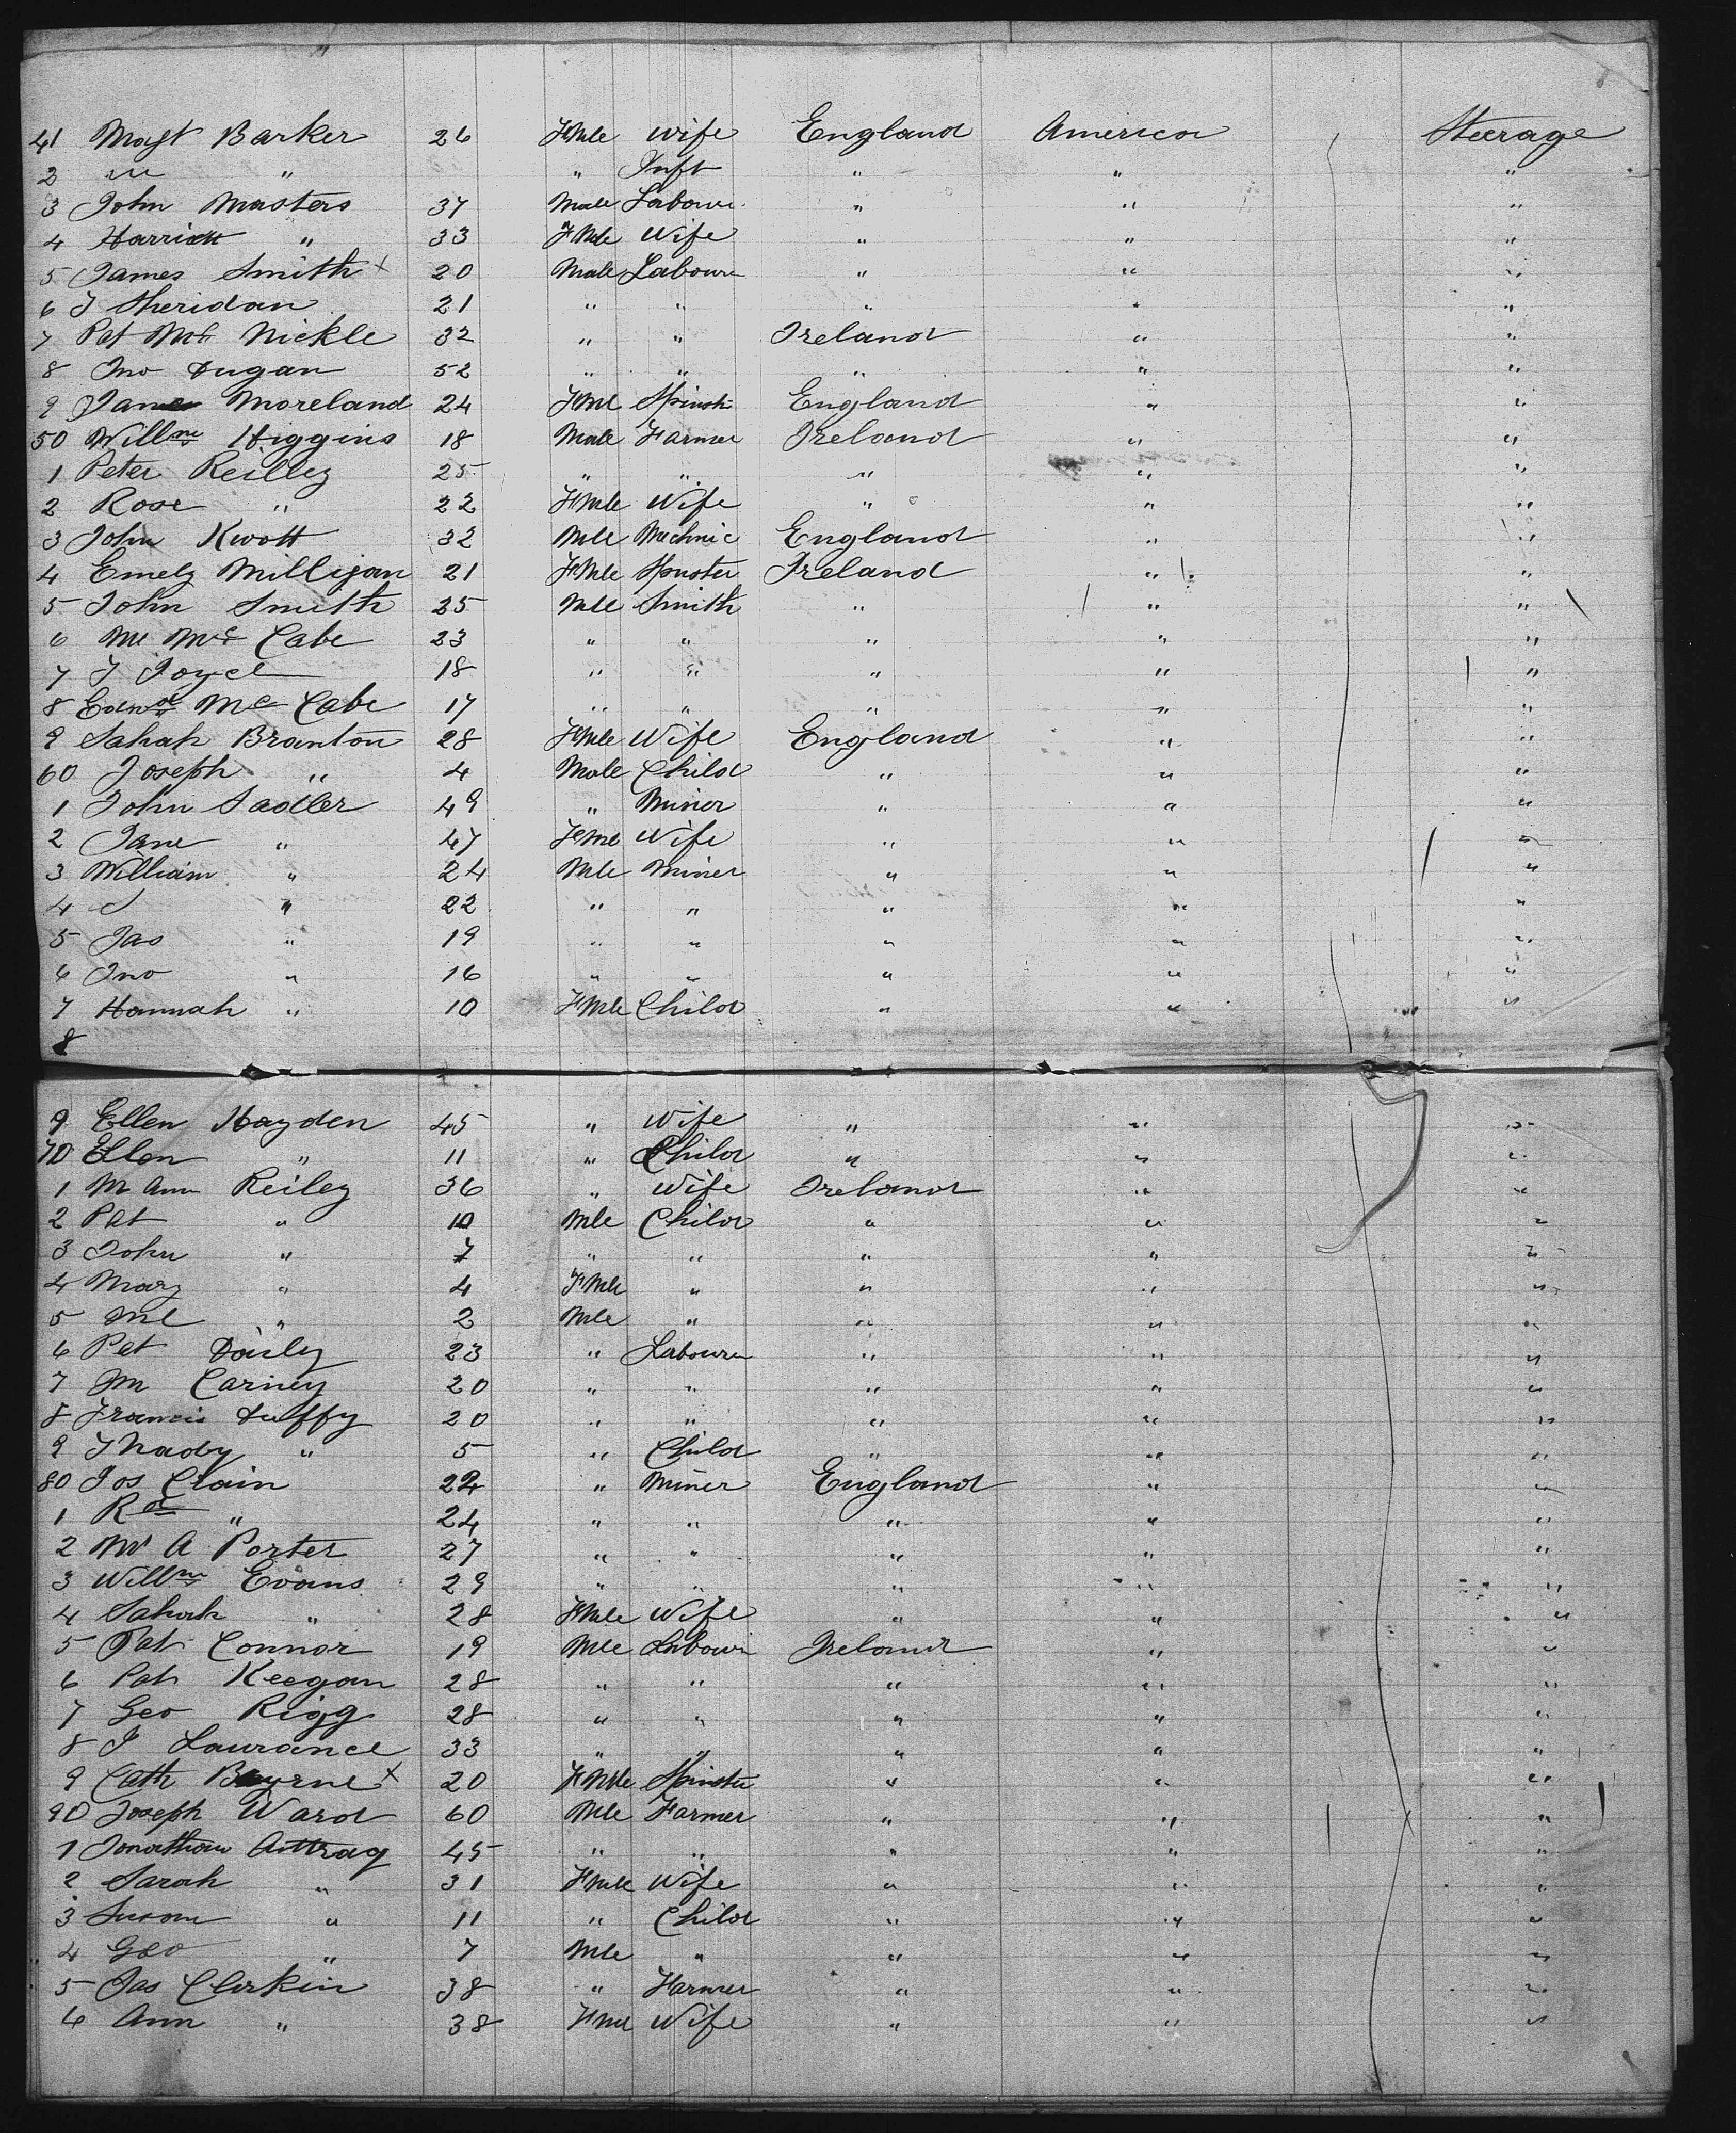 41 Magt Barker 26 Fmle Wife England America Steerage
2 M " " Inft " " "
3 John Masters 37 Male Labour " " "
4 Harriett " 33 Fmle Wife " " "
5 James Smith x 20 Male Labour " " "
6 T Sheridan 21 " " " " "
7 Pat Mc Nickle 32 " " Ireland " "
8 Jno Dugan 52 " " " " "
9 Jane Moreland 24 Fml Spinstr England " "
50 Willm Higgins 18 Male Farmer Ireland " "
1 Peter Reilley 25 " " " " "
2 Rose " 22 Fmle Wife " " "
3 John Kwott 32 Mle Mechnic England " "
4 Emely Milligan 21 Fmle Spnster Ireland " "
5 John Smith 25 Mle Smith " " "
6 Ml Mc Cabe 23 " " " " "
7 T Joyce 18 " " " " "
8 Edwd Mc Cabe 17 " " " " "
9 Sahah Branton 28 Fmle Wife England " "
60 Joseph " 4 Male Child " " "
1 John Sadler 49 " Miner " " "
2 Jane " 47 Fml Wife " " "
3 William " 24 Mle Miner " " "
4 S " 22 " " " " "
5 Jas " 19 " " " " "
6 Jno " 16 " " " " "
7 Hannah " 10 Fmle Child " " "
8
9 Ellen Hayden 45 " Wife " " "
70 Ellen " 11 " Child " " "
1 M Ann Reiley 36 " Wife Ireland " "
2 Pat " 10 Mle Child " " "
3 John " 7 " " " " "
4 Mary " 4 Fmle " " " "
5 Ml " 2 Mle " " " "
6 Pat Daily 23 " Labour " " "
7 M Carney 20 " " " " "
8 Francis Duffy 20 " " " " "
9 Thady " 5 " Child " " "
80 Jos Clain 22 " Miner England " "
1 Rd " 24 " " " " "
2 M A Porter 27 " " " " "
3 Willm Evans 29 " " " " "
4 Sahah " 28 Fmle Wife " " "
5 Pat Connor 19 Mle Labour Ireland " "
6 Pat Keegan 28 " " " " "
7 Geo Rigg 28 " " " " "
8 J Laurance 33 " " " " "
9 Cath Byrne x 20 Fmle Spinster " " "
90 Joseph Ward 60 Mle Farmer " " "
1 Jonathan Anttray 45 " " " " "
2 Sarah " 31 Fmle Wife " " "
3 Susan " 11 " Child " " "
4 Geo " 7 Mle " " " "
5 Jas Clerkin 38 " Farmer " " "
6 Ann " 38 Fml Wife " " "